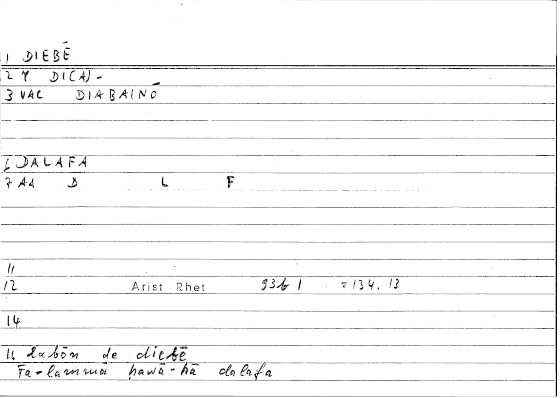 1 DIEBĒ
2 Y DI(A)-
3 VAC DIABAINŌ
6 DALAFA
7 AA D L F
11
12 Arist Rhet 93b 1 = 134, 13
14
16 labōn de diebē
Fa-lammā ḥawā-hā dalafa